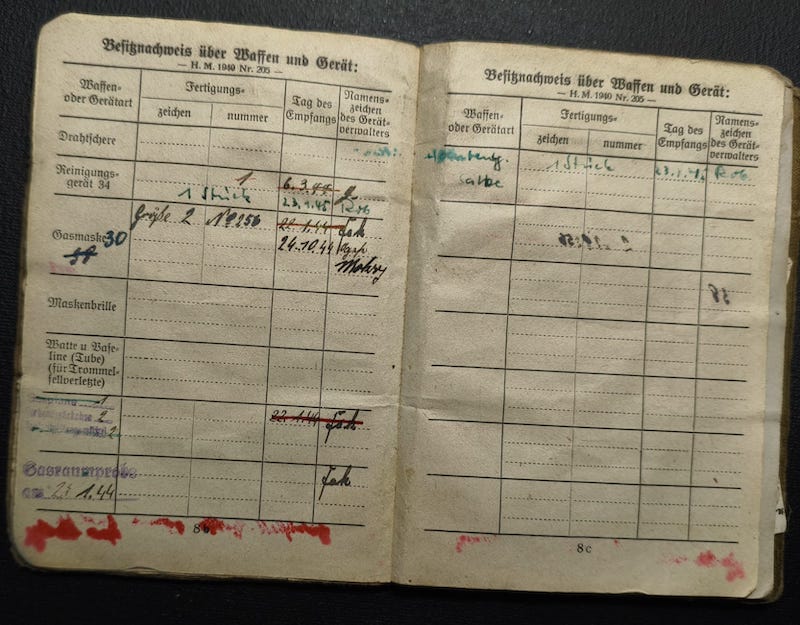 Besitznachweis über Waffen und Gerät:
— H. M. 1940 Nr. 205 —
Waffen-
oder Gerätart
Fertigungs-
zeichen
nummer
Tag des
Empfangs
Namens-
zeichen
des Gerät-
verwalters
Drahtschere
Reinigungs-
gerät 34
1
6.3.44
1 Stück
23.1.45
Rob
Gasmaske 30
Größe 2
22.1.44
Fak
24.10.44
Maskenbrille
Watte u Vase-
line (Tube)
(für Trommel-
fellverletzte)
1
2
2
Fak
Gasraumprobe
am 23 1.44
Fak
8b
Besitznachweis über Waffen und Gerät:
— H. M. 1940 Nr. 205 —
Waffen-
oder Gerätart
Fertigungs-
zeichen
nummer
Tag des
Empfangs
Namens-
zeichen
des Gerät-
verwalters
1 Stück
23.1.45
Rob
salbe
8c